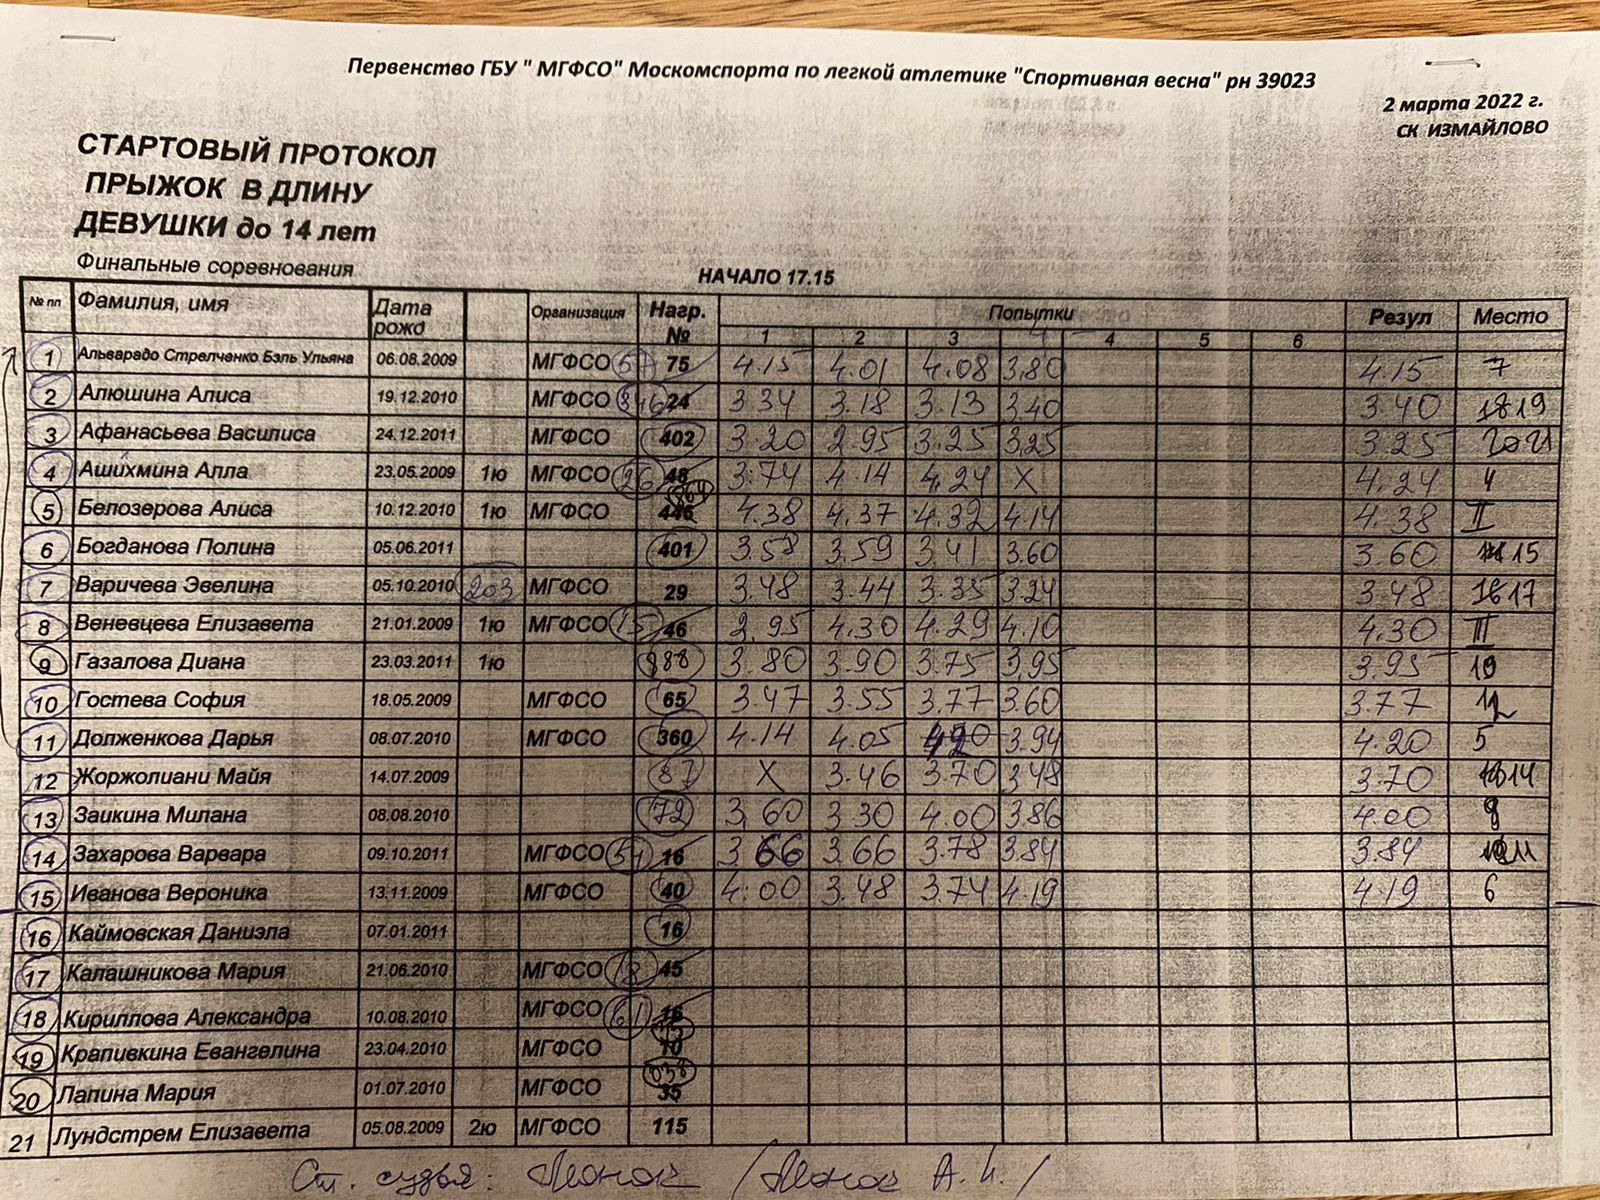 Первенство ГБУ " МГФСО" Москомспорта по легкой атлетике "Спортивная весна" рн 39023
2 марта 2022 г.
СК ИЗМАЙЛОВО
СТАРТОВЫЙ ПРОТОКОЛ
ПРЫЖОК В ДЛИНУ
ДЕВУШКИ до 14 лет
Финальные соревнования
НАЧАЛО 17.15
№ пп Фамилия, имя Дата рожд Организация Нагр. № Попытки Резул Место
1 2 3 4 4 5 6
1 Альварадо Стрелченко Бэль Ульяна 06.08.2009 МГФСО 57 75 4.15 4.01 4.08 3.80 4.15 7
2 Алюшина Алиса 19.12.2010 МГФСО 846 24 3.34 3.18 3.13 3.40 3.40 19
3 Афанасьева Василиса 24.12.2011 МГФСО 402 3.20 2.95 3.25 3.25 3.25 21
4 Ашихмина Алла 23.05.2009 1ю МГФСО 26 48 3.74 4.14 4.24 X 4.24 4
5 Белозерова Алиса 10.12.2010 1ю МГФСО 864 446 4.38 4.37 4.32 4.14 4.38 II
6 Богданова Полина 05.06.2011 401 3.58 3.59 3.41 3.60 3.60 15
7 Варичева Эвелина 05.10.2010 203 МГФСО 29 3.48 3.44 3.35 3.24 3.48 17
8 Веневцева Елизавета 21.01.2009 1ю МГФСО 15 46 2.95 4.30 4.29 4.10 4.30 III
9 Газалова Диана 23.03.2011 1ю 888 3.80 3.90 3.75 3.95 3.95 10
10 Гостева София 18.05.2009 МГФСО 65 3.47 3.55 3.77 3.60 3.77 12
11 Долженкова Дарья 08.07.2010 МГФСО 360 4.14 4.05 4.20 3.94 4.20 5
12 Жоржолиани Майя 14.07.2009 87 X 3.46 3.70 3.48 3.70 14
13 Заикина Милана 08.08.2010 72 3.60 3.30 4.00 3.86 4.00
14 Захарова Варвара 09.10.2011 МГФСО 54 16 3.66 3.66 3.78 3.84 3.84 11
15 Иванова Вероника 13.11.2009 МГФСО 40 4.00 3.48 3.74 4.19 4.19 6
16 Каймовская Даниэла 07.01.2011 16
17 Калашникова Мария 21.06.2010 МГФСО 18 45
18 Кириллова Александра 10.08.2010 МГФСО 61 16
19 Крапивкина Евангелина 23.04.2010 МГФСО 15 10
20 Лапина Мария 01.07.2010 МГФСО 038 35
21 Лундстрем Елизавета 05.08.2009 2ю МГФСО 115
Ст. судья: